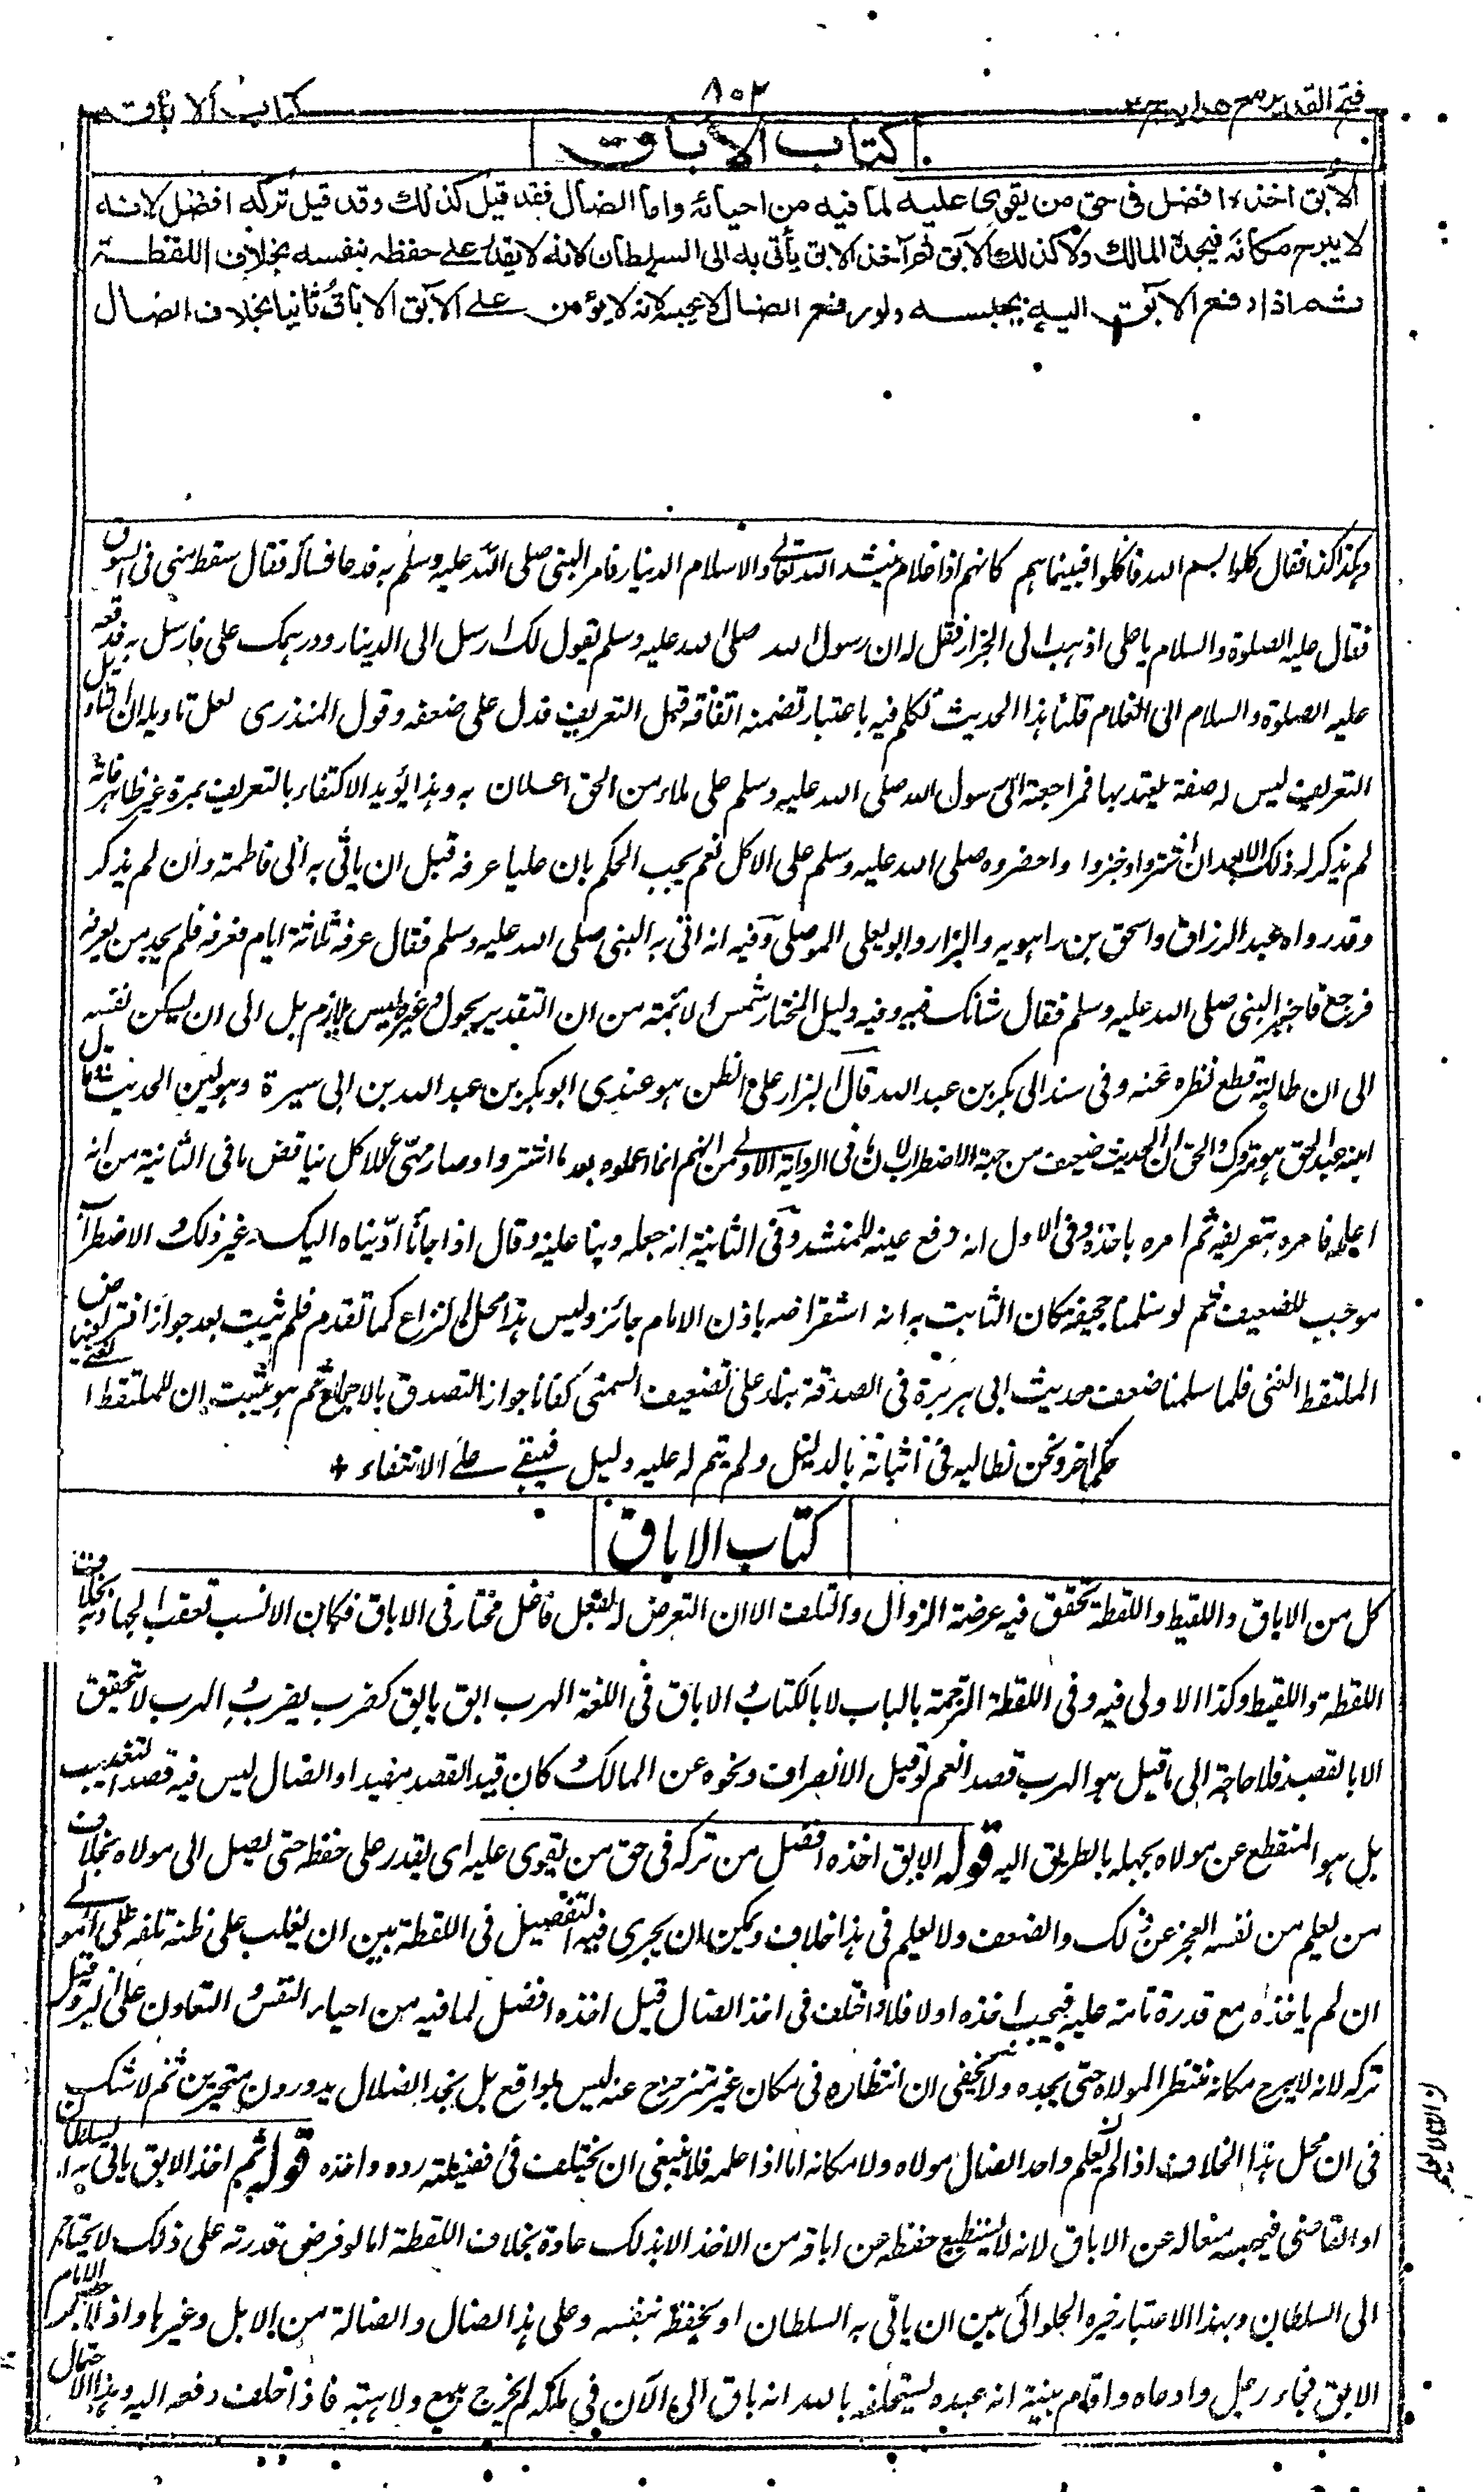 فتح القدير مع هدايه ج ٢
٨٠٢
كتاب الاباق
كتاب الاباق
الآبق اخذه افضل فى حق من يقوى عليه لما فيه من احيائه واما الضال فقد قيل كذلك وقد قيل تركه افضل لانه
لا يبرح مكانه فيجده المالك ولا كذلك الآبق ثم آخذ الآبق يأتى به الى السلطان لانه لا يقدر على حفظه بنفسه بخلاف اللقطة
ثم اذا دفع الآبق اليه يحبسه ولو رفع الضال لا يحبسه لانه لا يؤمن على الآبق الاباق ثانيا بخلاف الضال
وكذا كذا فقال كلوا بسم الله فاكلوا فبينما هم كانهم اذا غلام ينشد الله تعالى والاسلام الدينار فامر النبى صلى الله عليه وسلم به فدعا فسأله فقال سقط منى فى السوق
فقال عليه الصلوة والسلام يا على اذهب الى الجزار فقل له ان رسول الله صلى الله عليه وسلم يقول لك ارسل الى الدينار ودرهمك على فارسل به فدفعه
عليه الصلوة والسلام الى الغلام قلنا هذا الحديث تكلم فيه باعتبار تضمنه انفاقه قبل التعريف فدل على ضعفه وقول المنذرى لعل تاويله ان
التعريف ليس له صفة يعتد بها فمراجعته الى رسول الله صلى الله عليه وسلم على ملاء من الحق اعلان به وهذا يؤيد الاكتفاء بالتعريف بمرة غير ظاهر فانه
لم يذكر له ذلك الا بعد ان اشتروا وخبزوا واحضروه صلى الله عليه وسلم على الاكل نعم يجب الحكم بان عليا عرفه قبل ان ياتى به الى فاطمة وان لم يذكر
وقد رواه عبد الرزاق واسحق بن راهويه والبزار وابو يعلى الموصلى وفيه انه اتى به النبى صلى الله عليه وسلم فقال عرفه ثلاثة ايام فعرفه فلم يجد من يعرفه
فرجع فاخبر النبى صلى الله عليه وسلم فقال شانك به وفيه دليل المختار شمس الائمة من ان التقدير بحول وغيره ليس بلازم بل الى ان يسكن نفسه
الى ان طالبه قطع نظره عنه وفى سند ابى بكر بن عبد الله قال البزار على الظن هو عندى ابو بكر بن عبد الله بن ابى سبرة وهو لين الحديث
عبد الحق هو متروك والحق ان الحديث ضعيف من جهة الاضطراب لان ما فى الرواية الاولى من انهم انما اعلموه بعد ما اشتروا وصار مهيأ للاكل يناقض ما فى الثانية من انه
اعلمه فامره بتعريفه ثم امره باخذه وفى الاول انه دفع عينه للمنشد وفى الثانية انه جعله دينا عليه وقال اذا جاءنا ادّيناه اليك وغير ذلك الاضطراب
موجب للضعيف ثم لو سلمنا حجيته فكان الثابت به انه استقراضه باذن الامام جائز وليس هذا محل النزاع كما تقدم فلم يثبت بعد جواز افتراض
الملتقط الغنى فلما سلمنا ضعف حديث ابى هريرة فى الصدقة بناء على تضعيف السمتى كفانا جواز التصدق بالاجماع ثم هو يثبت ان للملتقط
حكما آخر ونحن نطالبه فى اثباته بالدليل ولم يتم له عليه دليل فيبقى على الانتفاء +
كتاب الاباق
كل من الاباق واللقيط واللقطة تحقق فيه عرضة الزوال والتلف الا ان التعرض له بفعل فاعل مختار فى الاباق فكان الانسب تعقب الجهاد به بخلاف
اللقطة واللقيط وكذا الاولى فيه وفى اللقطة الترجمة بالباب لا بالكتاب الاباق فى اللغة الهرب ابق يابق كضرب يضرب الهرب لا يتحقق
الا بالقصد فلا حاجة الى ما قيل هو الهرب قصدا نعم لو قيل الانصراف ونحوه عن المالك كان قيد القصد مفيدا والضال ليس فيه قصد التغييب
بل هو المنقطع عن مولاه بجهله بالطريق اليه قوله الآبق اخذه افضل من تركه فى حق من يقوى عليه اى يقدر على حفظه حتى يصل الى مولاه بخلاف
من يعلم من نفسه العجز عن ذلك والضعف ولا يعلم فى هذا خلاف ويمكن ان يجرى فيه التفصيل فى اللقطة بين ان يغلب على ظنه تلفه على المولى
ان لم ياخذه مع قدرة تامة عليه فيجب اخذه اولا فلا واختلف فى اخذ الضال قيل اخذه افضل لما فيه من احياء النفس والتعاون على البر وقيل
تركه لانه لا يبرح مكانه منتظرا لمولاه حتى يجده ولا يخفى ان انتظاره فى مكان غير متزحزح عنه ليس بواقع بل نجد الضلال يدورون متحيرين ثم لا شك
فى ان محل هذا الخلاف اذا لم يعلم واجد الضال مولاه ولا مكانه اما اذا علمه فلا ينبغى ان يختلف فى افضلية رده واخذه قوله ثم اخذ الآبق ياتى به السلطان
او القاضى فيحبسه منعا له عن الاباق لانه لا يستطيع حفظه عن اباقه من الاخذ الا بذلك عادة بخلاف اللقطة اما لو فرض قدرته على ذلك لا يحتاج
الى السلطان وبهذا الاعتبار خيره الحلوائى بين ان ياتى به السلطان او يحفظه بنفسه وعلى هذا الضال والضالة من الابل وغيرها واذا حبس الامام
الآبق فجاء رجل وادعاه واقام بينة انه عبده يستحلفه بالله انه باق الى الآن فى ملكه لم يخرج ببيع ولا هبة فاذا حلف دفعه اليه وهذا الاحتمال